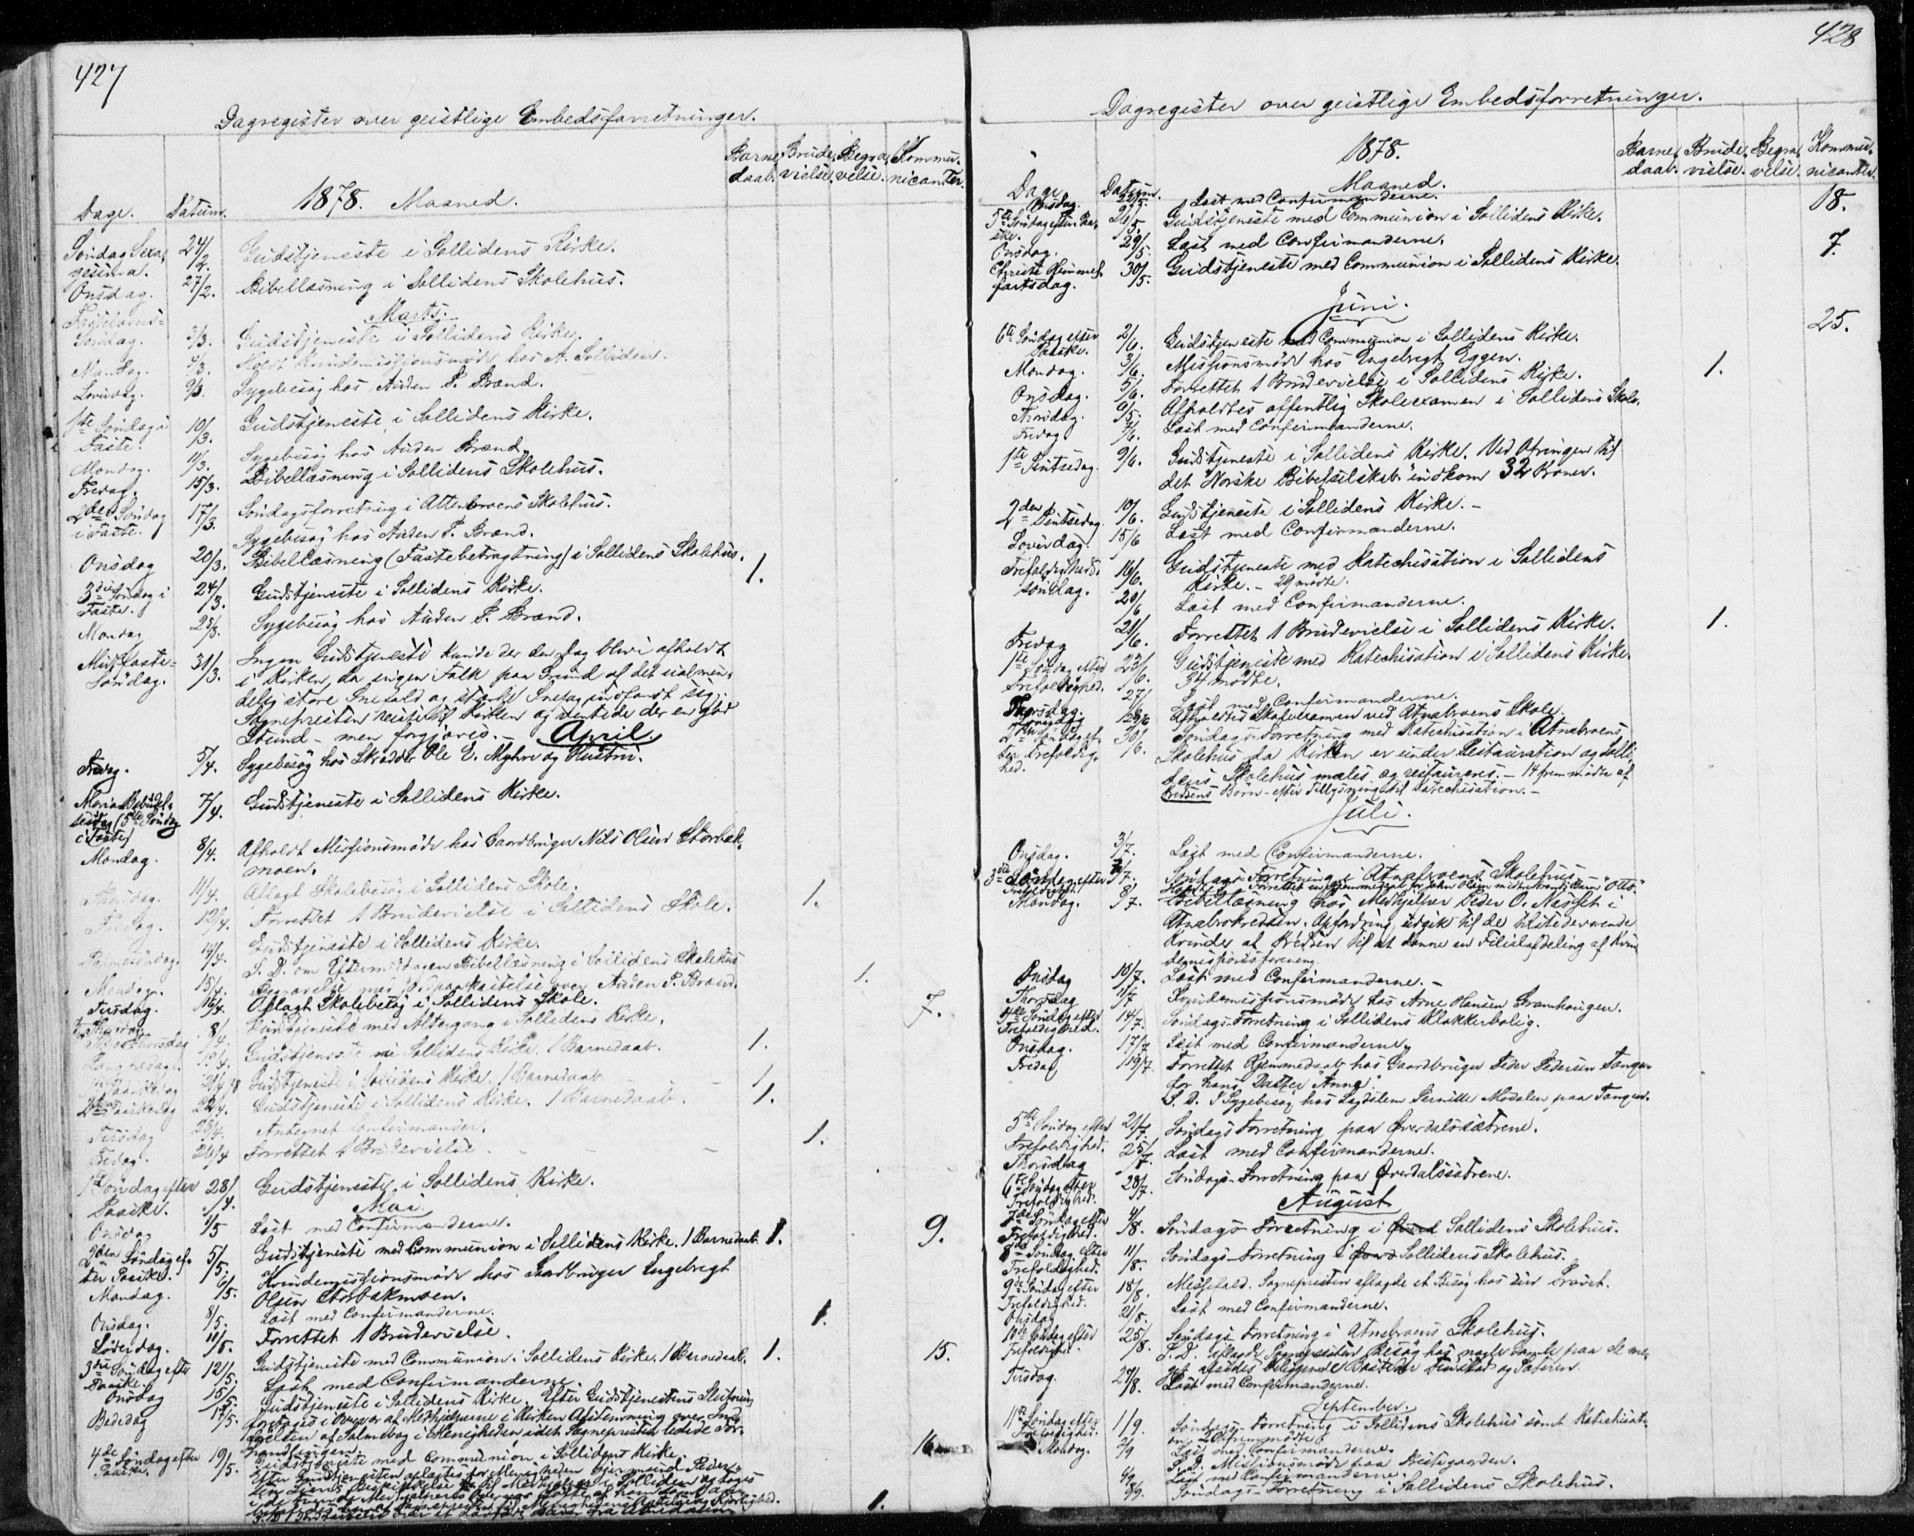 427
Dagregister over geistlige Embedsforretninger.
Dage. Datum. 1878. Maaned. Barnedaab. Brudevielse. Begravelse. Kommunicanter.
Søndag Sexagesima. 24/2. Gudstjeneste i Sollidens Kirke.
Onsdag. 27/2. Bibellæsning i Sollidens Skolehus.
Marts.
Fastelavns-
Søndag. 3/3. Gudstjeneste i Sollidens Kirke.
Mandag. 4/3. Holdt Kvindemissionsmøde hos A. Solliden.
Løverdag. 9/3. Sygebesøg hos Auden P. Brænd.
1ste Søndag i Faste. 10/3. Gudstjeneste i Sollidens Kirke.
Mandag. 11/3. Sygebesøg hos Auden Brænd.
Fredag. 15/3. Bibellæsning i Sollidens Skolehus.
2den Søndag i Faste. 17/3. Søndagsforretning i Atnebroens Skolehus.
Sygebesøg hos Auden P. Brænd.
Onsdag 20/3. Bibellæsning (Fastebetragtning) i Sollidens Skolehus.
3die Søndag i Faste. 24/3. Gudstjeneste i Sollidens Kirke. 1.
Mandag 25/3. Sygebesøg hos Auden P. Brænd.
Midfaste-
Søndag. 31/3. Ingen Gudstjeneste kunde der den Dag blive afholdt
i Kirken, da ingen Folk paa Grund af det ualmin-
delig store Snefald og stærke Snetog indfandt sig.
Sognepresten reiste til Kirken og ventede der en god
Stund - men forgjæves. -
April
Fredag. 5/4. Sygebesøg hos Skrædder Ole E. Myhre og Hustru.
Mariæ Bebudelsesdag (5te Søndag i Faste) 7/4. Gudstjeneste i Sollidens Kirke.
Mandag. 8/4. Afholdt Missionsmøde hos Gaardbruger Nils Olsen Storbæk-
moen.
Thorsdag. 11/4. Aflagt Skolebesøg i Sollidens Skole.
Fredag. 12/4. Forrettet 1 Brudevielse i Sollidens Skole. 1.
Palmesøndag. 14/4. Gudstjeneste i Sollidens Kirke.
S. D. om Eftermiddagen Bibellæsning i Sollidens Skolehus
Mandag. 15/4. Begravelse med Jordpaakastelse over Auden P. Brænd. 1.
Tirsdag. 16/4. Aflagt Skolebesøg i Sollidens Skole.
Skjærthorsdag 18/4. Gudstjeneste med Altergang i Sollidens Kirke. 7.
Langfredag. 19/4. Gudstjeneste i Sollidens Kirke. 1 Barnedaab. 1.
1ste Paaskedag 21/4 Gudstjeneste i Sollidens Kirke. 1 Barnedaab - 1.
2den Paaskedag 22/4. Gudstjeneste i Sollidens Kirke. 1 Barnedaab. 1.
Tirsdag 23/4. Antegnet Confirmander.
Fredag. 26/4 Forrettet 1 Brudevielse - - - 1.
1ste Søndag efter Paaske. 28/4. Gudstjeneste i Sollidens Kirke.
Mai.
Onsdag 1/5 Læst med Confirmanderne.
2den Søndag efter Paaske. 5/5. Gudstjeneste med Communion i Sollidens Kirke. 1 Barnedaab. 1. 9.
Mandag. 6/5. Kvindemissionsmøde hos Gaardbruger Engebregt
Olsen Storbækmoen.
Onsdag. 8/5. Læst med Confirmanderne.
Løverdag. 11/5. Forrettet 1 Brudevielse. 1.
3die Søndag efter Paaske. 12/5. Gudstjeneste med Communion i Sollidens Kirke. 1 Barnedaab. 1. 15.
Onsdag 15/5. Læst med Confirmanderne.
Bededag 17/5. Gudstjeneste i Sollidens Kirke. Efter Gudstjenestens Slutning
foretoges i Nærvær af Medhjelperne i Kirken Afstemning over Ind-
førelsen af Salmebog i Menigheden idet Sognepresten ledede For-
handlingen.
4de Søndag efter Paaske. 19/5. Gudstjeneste med Communion i Sollidens Kirke. 16
Efter Gudstjenesten
1.
428
Dagregister over geistlige Embedsforretninger.
Dage Datum. 1878. Maaned. Barnedaab. Brudevielse. Begravelse. Kommunicanter.
Onsdag. 22/5. Læst med Confirmanderne.
5te Søndag efter Paaske. 26/5. Gudstjeneste med Communion i Sollidens Kirke. 18.
Onsdag. 29/5. Læst med Confirmanderne.
Christi Himmelfartsdag. 30/5. Gudstjeneste med Communion i Sollidens Kirke. 7.
Juni.
6te Søndag efter Paaske. 2/6. Gudstjeneste med Communion i Sollidens Kirke. 25.
Mandag. 3/6. Missionsmøde hos Engebregt Eggen.
Onsdag. 5/6. Forrettet 1 Brudevielse i Sollidens Kirke. 1.
Thorsdag. Afholdtes offentlig Skoleexamen i Sollidens Skole.
Fredag 7/6. Læst med Confirmanderne.
1ste Pintsedag. 9/6. Gudstjeneste i Sollidens Kirke. Ved Ofringen til
det Norske Bibelselskab indkom 32 Kroner.
2den Pintsedag. 10/6. Gudstjeneste i Sollidens Kirke. -
Løverdag. 15/6 Læst med Confirmanderne.
Trefoldigheds-
søndag. 16/6. Gudstjeneste med Katechisation i Sollidens
Kirke. - 29 mødte.
20/6 Læst med Confirmanderne.
Fredag 21/6. Forrettet 1 Brudevielse i Sollidens Kirke. 1.
1ste Søndag efter Trefoldighed. 23/6. Gudstjeneste med Katechisation i Sollidens Kirke.
34 mødte.
Thorsdag. 27/6 Læst med Confirmanderne.
Løverdag 29/6 Afholdtes Skoleexamen ved Atnebroens Skole.
2den Søndag efter Trefoldighed. 30/6. Søndags-Forretning med Katechisation i Atnebroens
Skolehus da Kirken er under Restauration og Solli-
dens Skolehus males og restaureres. - 14 fremmødte af
Kredsens Børn - efter Tillysning til Katechisation. -
Juli.
Onsdag. 3/7. Læst med Confirmanderne.
3die Søndag efter Trefoldighed. 7/7. Søndags-Forretning i Atnebroens Skolehus. -
Mandag. 8/7. Bibellæsning hos Medhjelper Peder O. Næsset i
Atnebrokredsen. Opfordring udgik til de tilstedeværende
Kvinder af Kredsen til at danne en Filialafdeling af Kvin-
demissionsforening.
Onsdag 10/7. Læst med Confirmanderne. -
Thorsdag 11/7 Kvindemissionsmøde hos Arne Hansen Bramhaugen.
4de Søndag efter Trefoldighed. 14/7. Søndags-Forretning i Sollidens Klokkerbolig.
Onsdag. 17/7 Læst med Confirmanderne.
Fredag 19/7. Forrettet Hjemmedaab hos Gaardbruger Peder Pedersen Tangen
for hans Datter "Anna".
S. D. 1 Sygebesøg hos Lægdslem Pernille Modalen paa Tangen.
5te Søndag efter Trefoldighed. 21/7. Søndags Forretning paa Øverdalssætrene.
Thorsdag 25/7. Læst med Confirmanderne.
6te Søndag efter Trefoldighed. 28/7. Søndags-Forretning paa Øverdalssætrene.
August
7de Søndag efter Trefoldighed. 4/8. Søndags-Forretning i Sollidens Skolehus.
8de Søndag efter Trefoldighed. 11/8. Søndags-Forretning i Sollidens Skolehus.
9de Søndag efter Trefoldighed. 18/8. Messefald. Sognepresten aflagde et Besøg hos sin
Onsdag 21/8. Læst med Confirmanderne.
10de Søndag efter Trefoldighed. 25/8. Søndags Forretning i Atnebroens Skolehus.
S. D. aflagde Sognepresten Besøg hos nogle Gamle paa de me-
get Pladse
Tirsdag. 27/8. Læst med Confirmanderne.
September.
11te Søndag efter Trefoldighed. 1/9. Søndags-Forretning i Sollidens Skolehus samt Katechisati-
on. 20 fremmødte.
Mandag. 2/9 Læst med Confirmanderne.
S. D. Missionsmøde paa Prestegaarden.
4/9 Læst med Confirmanderne.
8/9. Søndags-Forretning i Sollidens Skolehus.